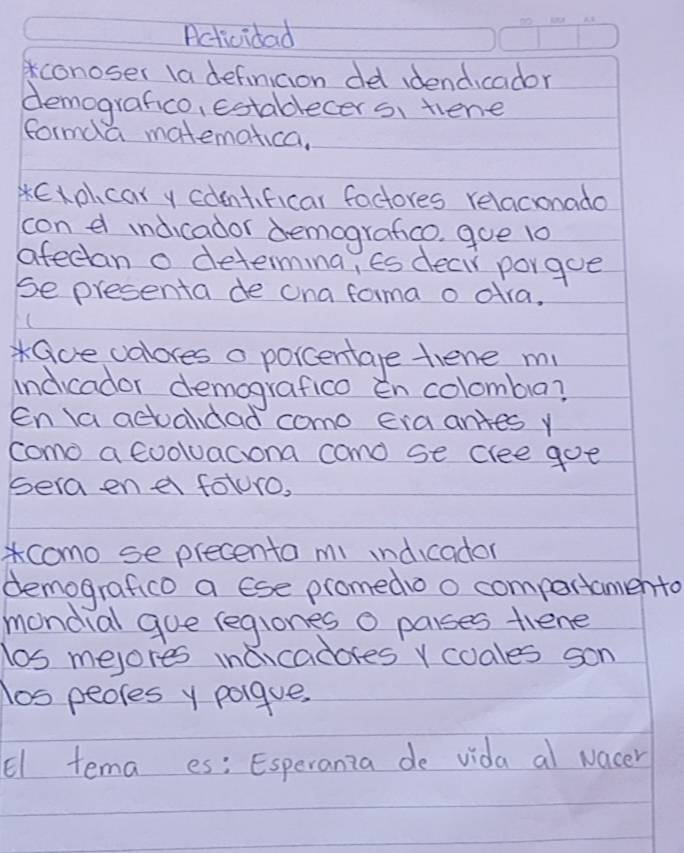 Acticidad
*conoser la definicion del idendicador
demografico, establecer si tiene
formula matematica.
*Explicar y identificar factores relacionado
con el indicador demografico. que lo
afectan o determina, es decir porque
se presenta de una forma o otra.
*Que valores o porcentaje tiene mi
indicador demografico en colombia?
En la actualidad como era antes y
como a evoluaciona como se cree que
sera en el foturo.
*como se precenta mi indicador
demografico a ese promedio o compartamento
mondial que regiones o paises tiene
los mejores indicadores y cuales son
los peores y porque.
El tema es: Esperanza de vida al Nacer